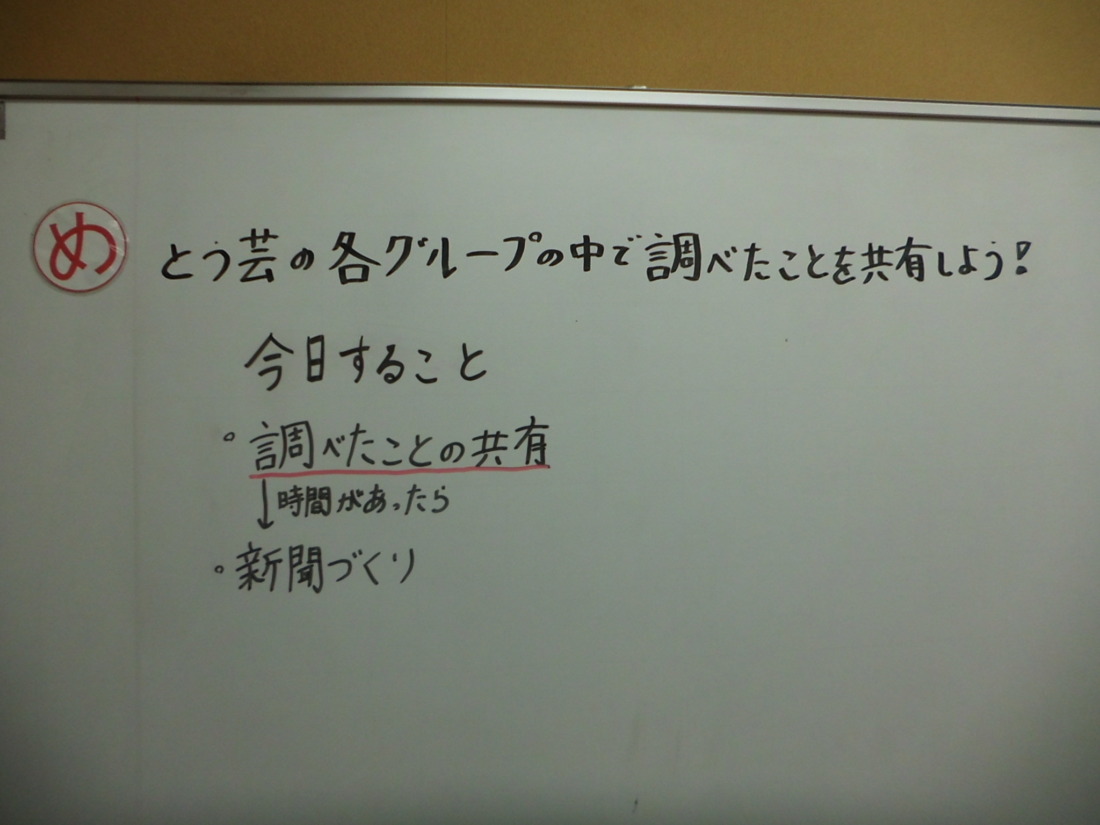 め とう芸の各グループの中で調べたことを共有しよう!
今日すること
。調べたことの共有
↓時間があったら
。新聞づくり